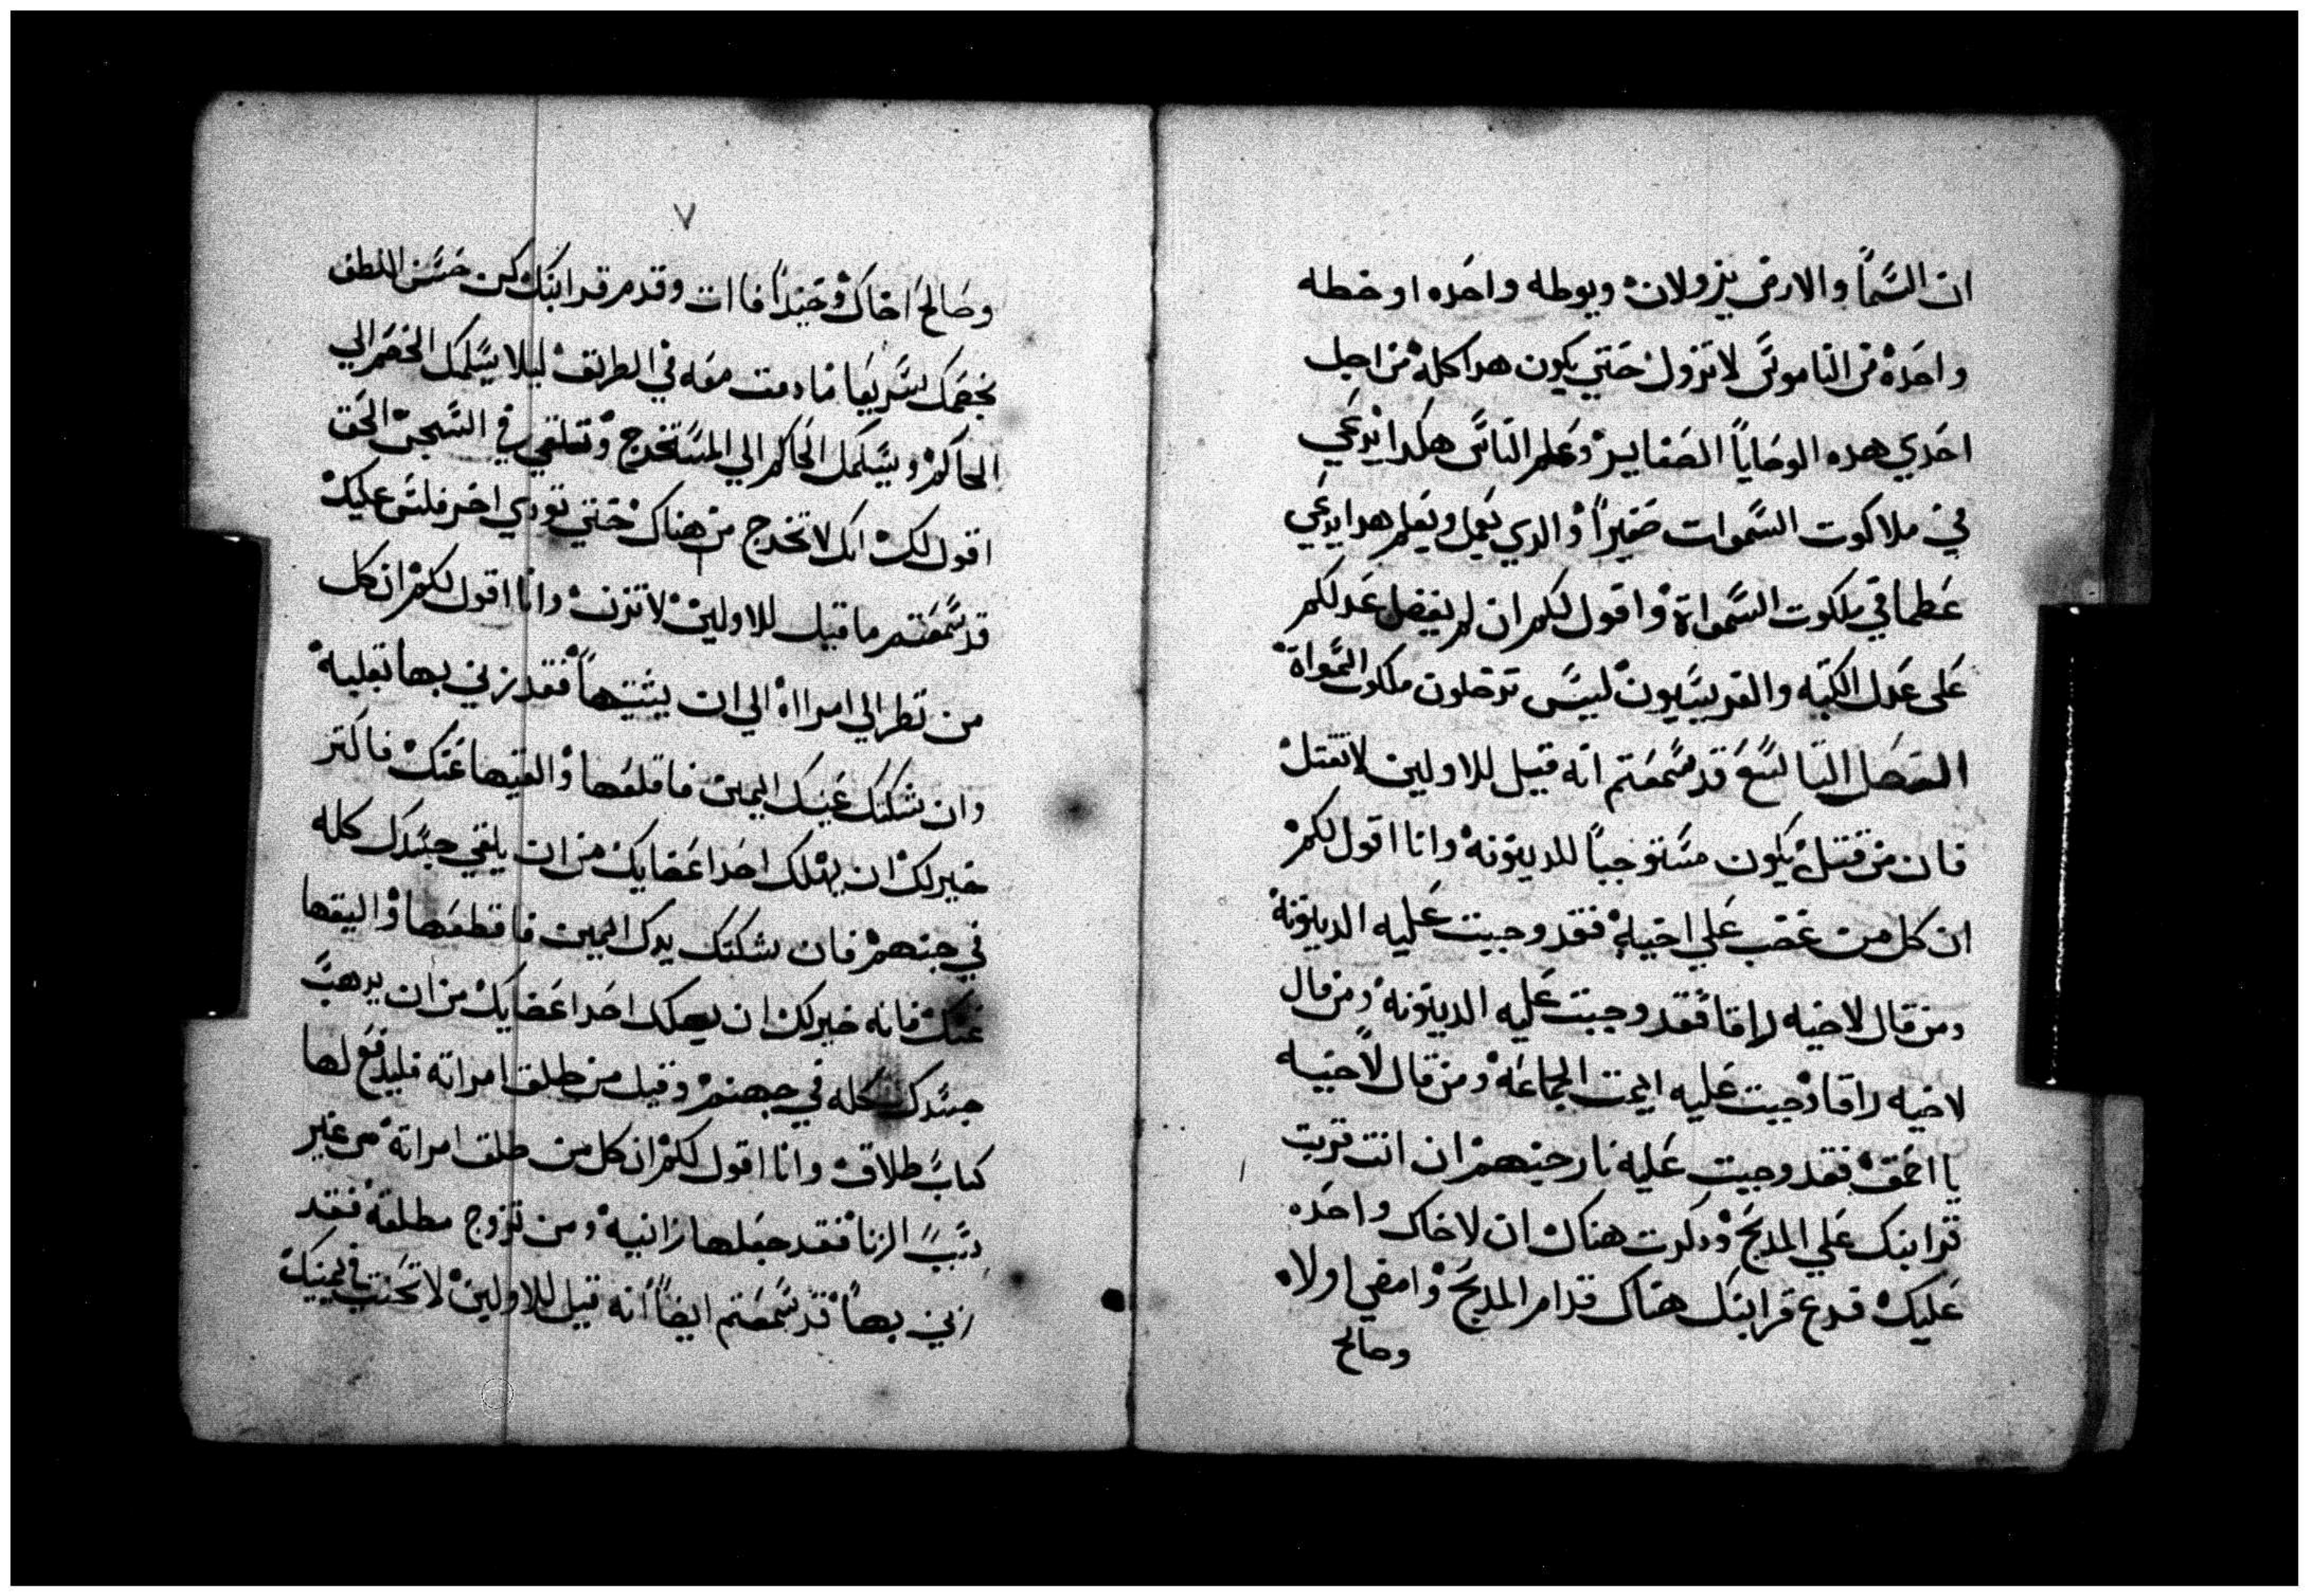 ان السَّمأ والارض يزولان ويوطه واحَده او خطه
واحَدة من النامونَّ لا تزول حَتي يكون هدا كله من اجل
احَدي هده الوصَاياً الصَغايير وعَلم النَاسَّ هكدا يدعَي
في ملاكوت السَّموات صَغيراً والدي يَعمل ويعَلم هدا يدعَي
عَظما في ملكوت السَّمواة واقول لكم ان لم يفضل عَدلكم
عَلي عَدل الكتبه والفريسَّيون ليسَّ تدخلون ملكوت السَّمواة
الفصَل التاسَّع قد سَّمعَتم انه قيل للاولين لا تقتل
فان من قتل يكون مسَّتوجباً للدينونه وانا اقول لكم
ان كل من غَضَب عَلي اخيه فقد وجبت عَليه الدينونة
ومن قال لاخيه راقا فقد وجبت عَليه الدينونة ومن قال
لاخيه راقا وجبت عَليه ايمت الجماعَة ومن قال لاخيه
يا احَمق فقد وجبت عَليه نار جنهم ان انت قربت
قرابنك عَلي المدبَح ودكرت هناك ان لاخاك واحَده
عَليك فدع قرابنك هناك قدام المدبَح وامضي اولاه
وصالح
٧
وصَالحَ اخاك وحَيندأ فاات وقدم قرابنك كن حَسَّن اللطف
بخصَمك سَّريعَا ما دمت معَه في الطريق ليلا يسَّلمك الخصَم الي
الحاكم ويسَّلمك الحَاكم الي المسَّتخرج وتلقي في السَّجن الحَق
اقول لك انك لا تخرج من هناك حَتي تودي اخر فلسَّ عَليك
قد سَّمعَتم ما قيل للاولين لا تزن وانا اقول لكم ان كل
من نظر الي امرااة الي ان يشتهيها فقد زني بها بقلبه
وان شكتك عَينك اليمين فاقلعَها والقيها عَنك فاكتر
خير لك ان يهلك احَد اعَضايك من ان يلقي جسَّدك كله
في جنهم فان شكتك يدك اليمين فاقطعَها واليقها
عَنك فانه خير لك ان يهلك احَد اعَضايك من ان يدهب
جسَّدك كله في جهنم وقيل من طلق امراته فليدفع لها
كتاب طلاق وانا اقول لكم ان كل من طلق امراتة من غير
سَّبب الزنا فقد جعَلها زانية ومن تزوج مطلقة فقد
زني بها قد سَّمعَتم ايضاً انه قيل للاولين لا تحَنت في يمينك